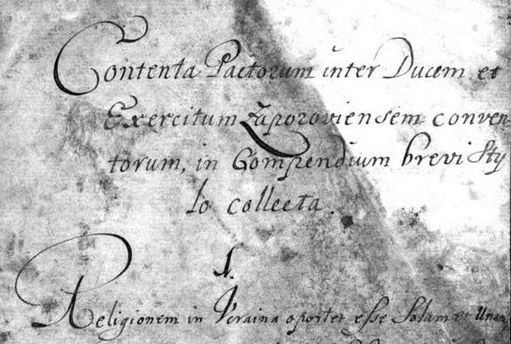 Contenta Pactorum inter Ducem et
Exercitum Zaporoviensem conven-
torum, in Compendium brevi Sty
lo collecta.
1.
Religionem in Vcraina oportet esse Solam et Unam